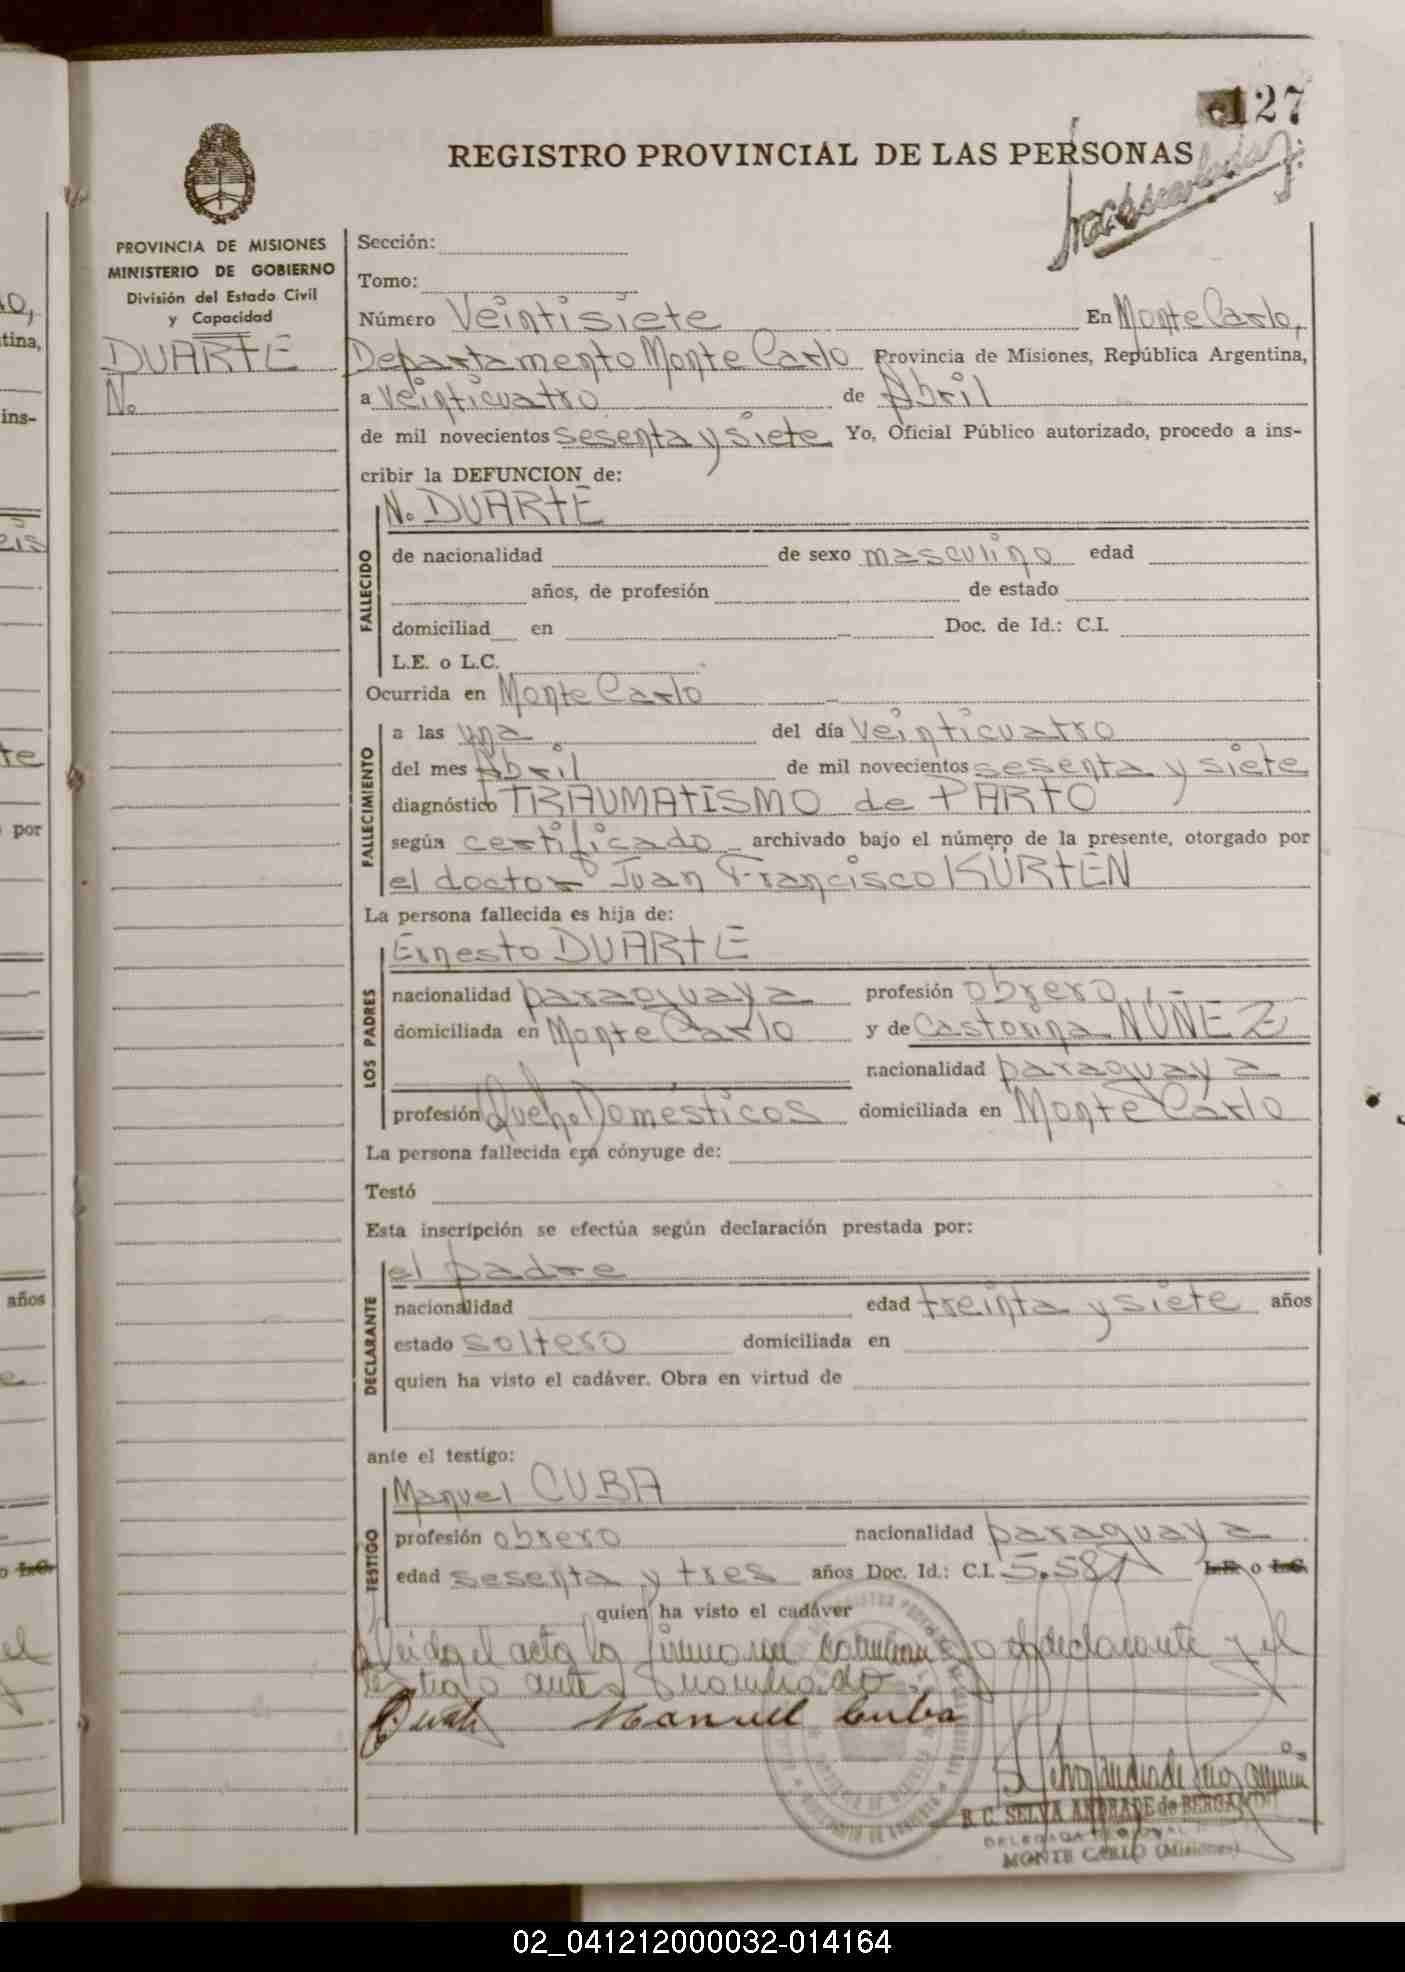 127
REGISTRO PROVINCIAL DE LAS PERSONAS
PROVINCIA DE MISIONES
MINISTERIO DE GOBIERNO
División del Estado Civil
y Capacidad
DUARTE
N.
Sección:
Tomo:
Número Veintisiete En Monte Carlo,
Departamento Monte Carlo Provincia de Misiones, República Argentina,
a veinticuatro de Abril
de mil novecientos sesenta y siete Yo, Oficial Público autorizado, procedo a ins-
cribir la DEFUNCION de:
FALLECIDO
N. DUARTE
de nacionalidad de sexo masculino edad
años, de profesión de estado
domiciliad en Doc. de Id.: C.I.
L.E. o L.C.
Ocurrida en Monte Carlo
FALLECIMIENTO
a las una del día veinticuatro
del mes Abril de mil novecientos sesenta y siete
diagnóstico TRAUMATISMO de PARTO
según certificado archivado bajo el número de la presente, otorgado por
el doctor Juan Francisco KÜRTEN
La persona fallecida es hija de:
LOS PADRES
Ernesto DUARTE
nacionalidad paraguaya profesión obrero
domiciliada en Monte Carlo y de Castorina NÚÑEZ
nacionalidad paraguaya
profesión Queh. Domésticos domiciliada en Monte Carlo
La persona fallecida era cónyuge de:
Testó
Esta inscripción se efectúa según declaración prestada por:
DECLARANTE
el padre
nacionalidad edad treinta y siete años
estado soltero domiciliada en
quien ha visto el cadáver. Obra en virtud de
ante el testigo:
TESTIGO
Manuel CUBA
profesión obrero nacionalidad paraguaya
edad sesenta y tres años Doc. Id.: C.I. 5.581 L.E. o L.C.
quien ha visto el cadáver
Leida el acta la firman conmigo el declarante y el
testigo antes nombrado.
Manuel Cuba
B. C. SELVA ANDRADE de BERGAMIN
DELEGADA REGIONAL
MONTE CARLO (Misiones)
02_041212000032-014164